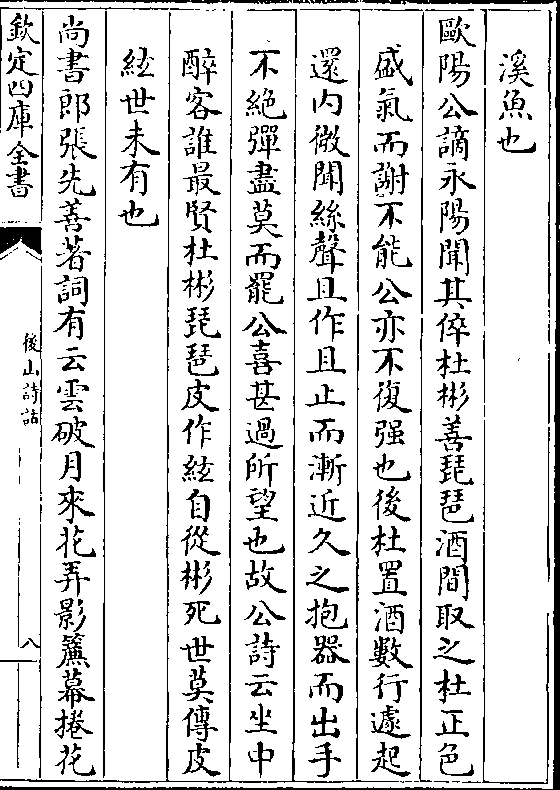 溪魚也
歐陽公謫永陽聞其倅杜彬善琵琶酒間取之杜正色
盛氣而謝不能公亦不復强也後杜置酒數行遽起
還内微聞絲聲且作且止而漸近久之抱器而出手
不絶彈盡莫而罷公喜甚過所望也故公詩云坐中
醉客誰最賢杜彬琵琶皮作絃自從彬死世莫傳皮
絃世未有也
尚書郎張先善著詞有云雲破月來花弄影簾幕捲花
欽定四庫全書
後山詩話
八